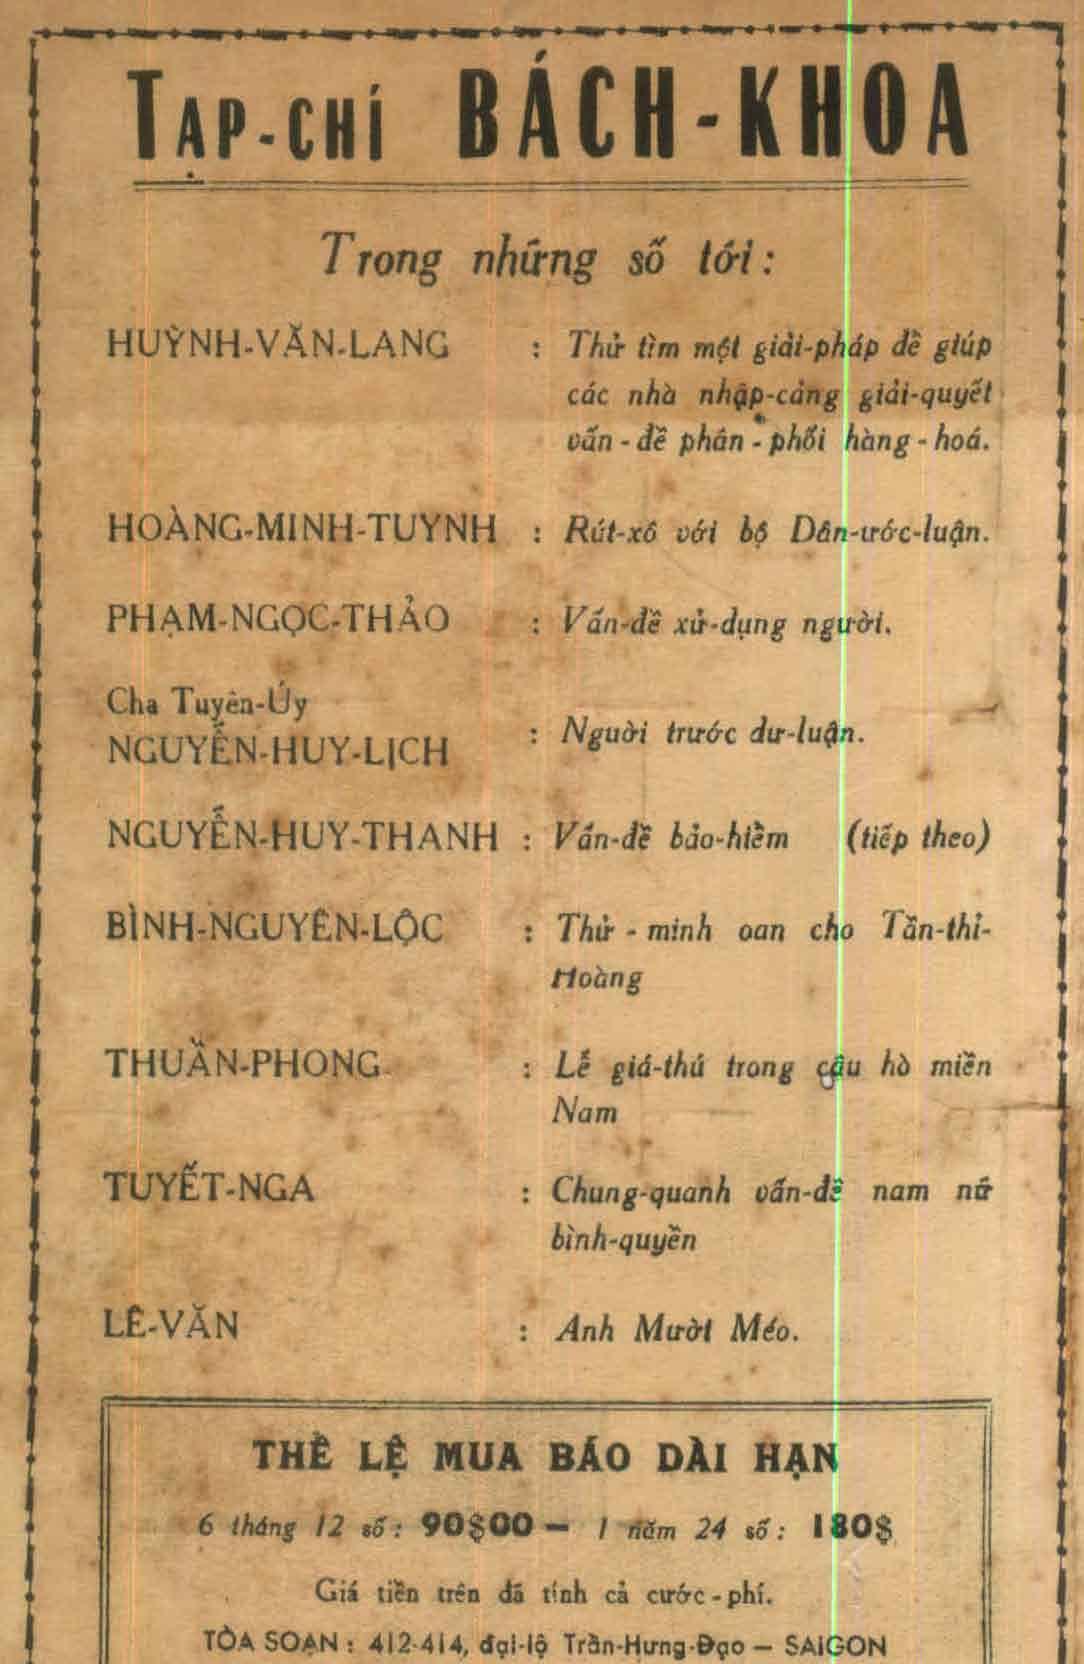 TẠP-CHÍ BÁCH-KHOA
Trong những số tới :
HUỲNH-VĂN-LANG : Thử tìm một giải-pháp để giúp
các nhà nhập-cảng giải-quyết
vấn-đề phân-phối hàng-hoá.
HOÀNG-MINH-TUYNH : Rút-xô với bộ Dân-ước-luận.
PHẠM-NGỌC-THẢO : Vấn-đề xử-dụng người.
Cha Tuyên-Úy
NGUYỄN-HUY-LỊCH : Người trước dư-luận.
NGUYỄN-HUY-THANH : Vấn-đề bảo-hiểm (tiếp theo)
BÌNH-NGUYÊN-LỘC : Thử-minh oan cho Tần-thỉ-
Hoàng
THUẦN-PHONG : Lễ giá-thú trong câu hò miền
Nam
TUYẾT-NGA : Chung-quanh vấn-đề nam nữ
bình-quyền
LÊ-VĂN : Anh Mười Méo.
THỂ LỆ MUA BÁO DÀI HẠN
6 tháng 12 số : 90$00 — 1 năm 24 số : 180$
Giá tiền trên đã tính cả cước-phí.
TÒA SOẠN : 412-414, đại-lộ Trần-Hưng-Đạo — SAIGON